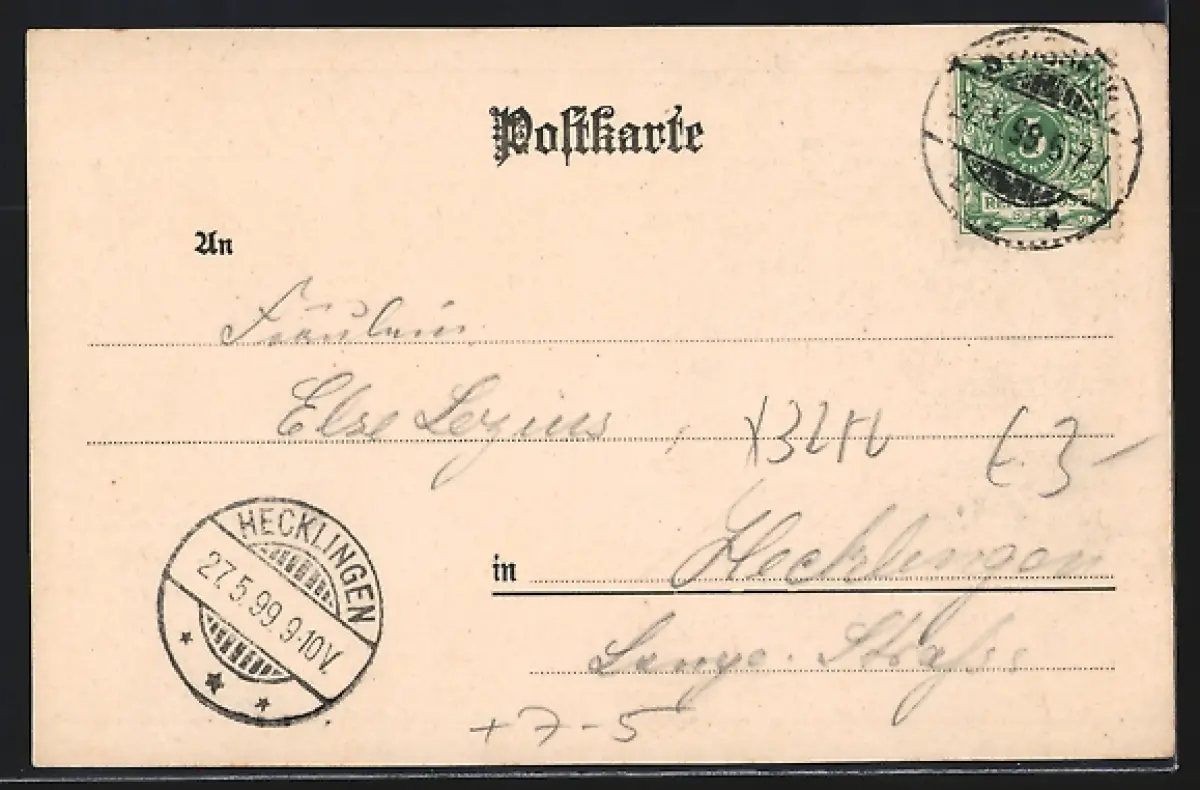 Postkarte
5
PFENNIG
REICHSPOST
An
Fräulein
Else Lezius
x3252
E 3-
HECKLINGEN
27.5.99.9-10V.
in Hecklingen
Lange Straße
+7-5